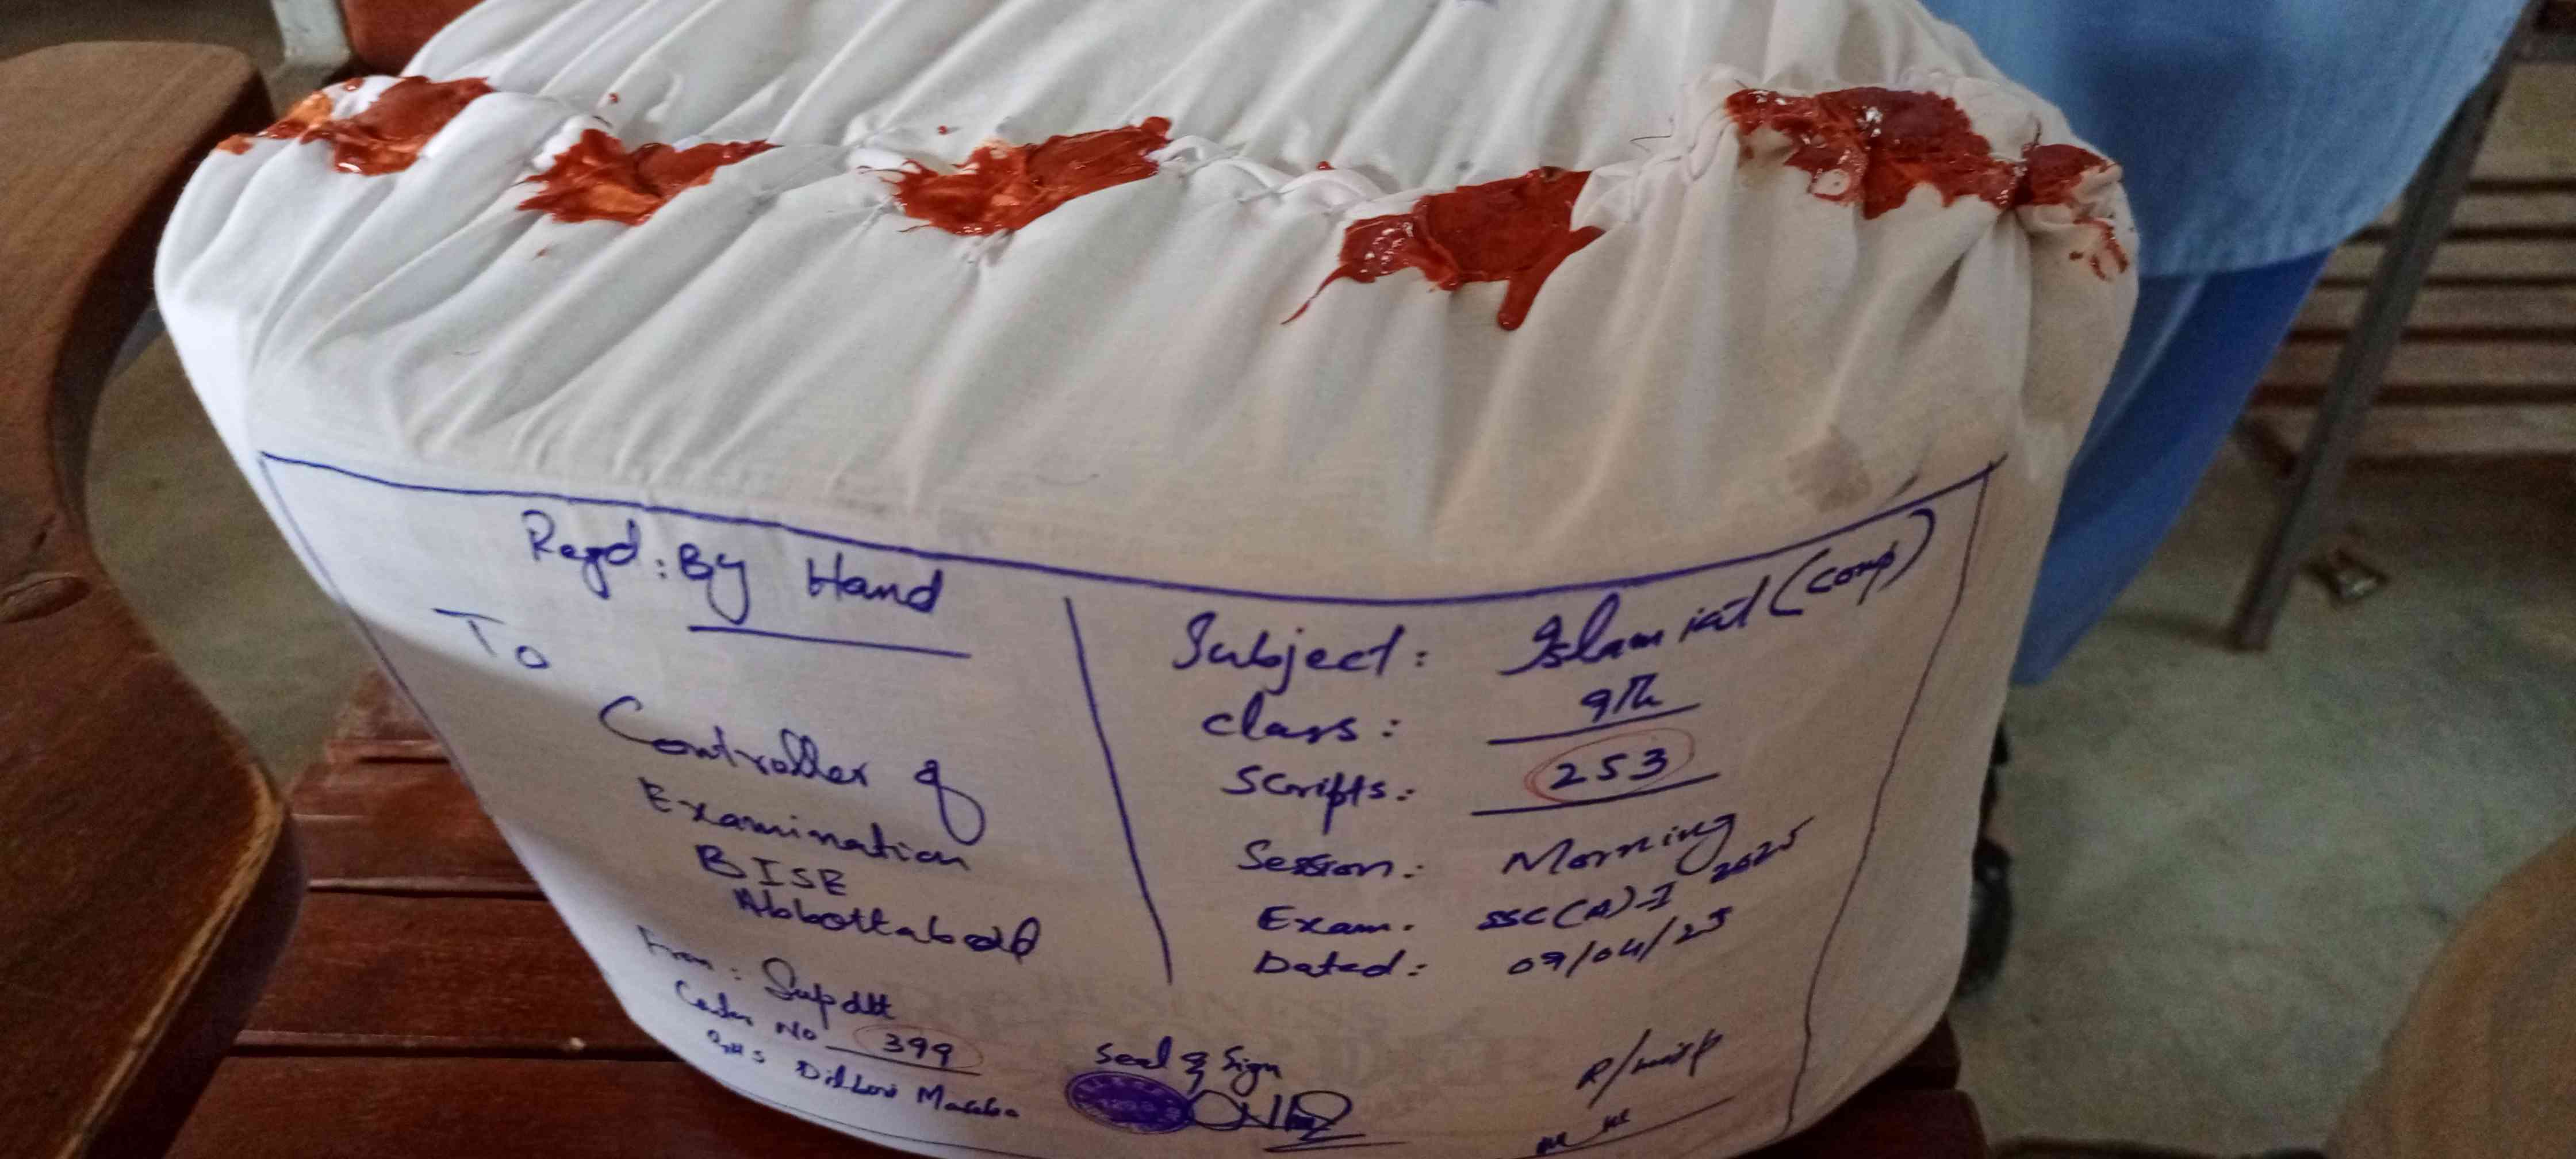 Regd: By Hand
To
Controller of
Examination
BISE
Abbottabad
From: Supdtt
Center No 399
GHS Dillori Maseba
Subject: Islamiat (Comp)
Class: 9th
Scripts: 253
Session: Morning
Exam. SSC(A)-I 2025
Dated: 09/04/25
Seal & Sign